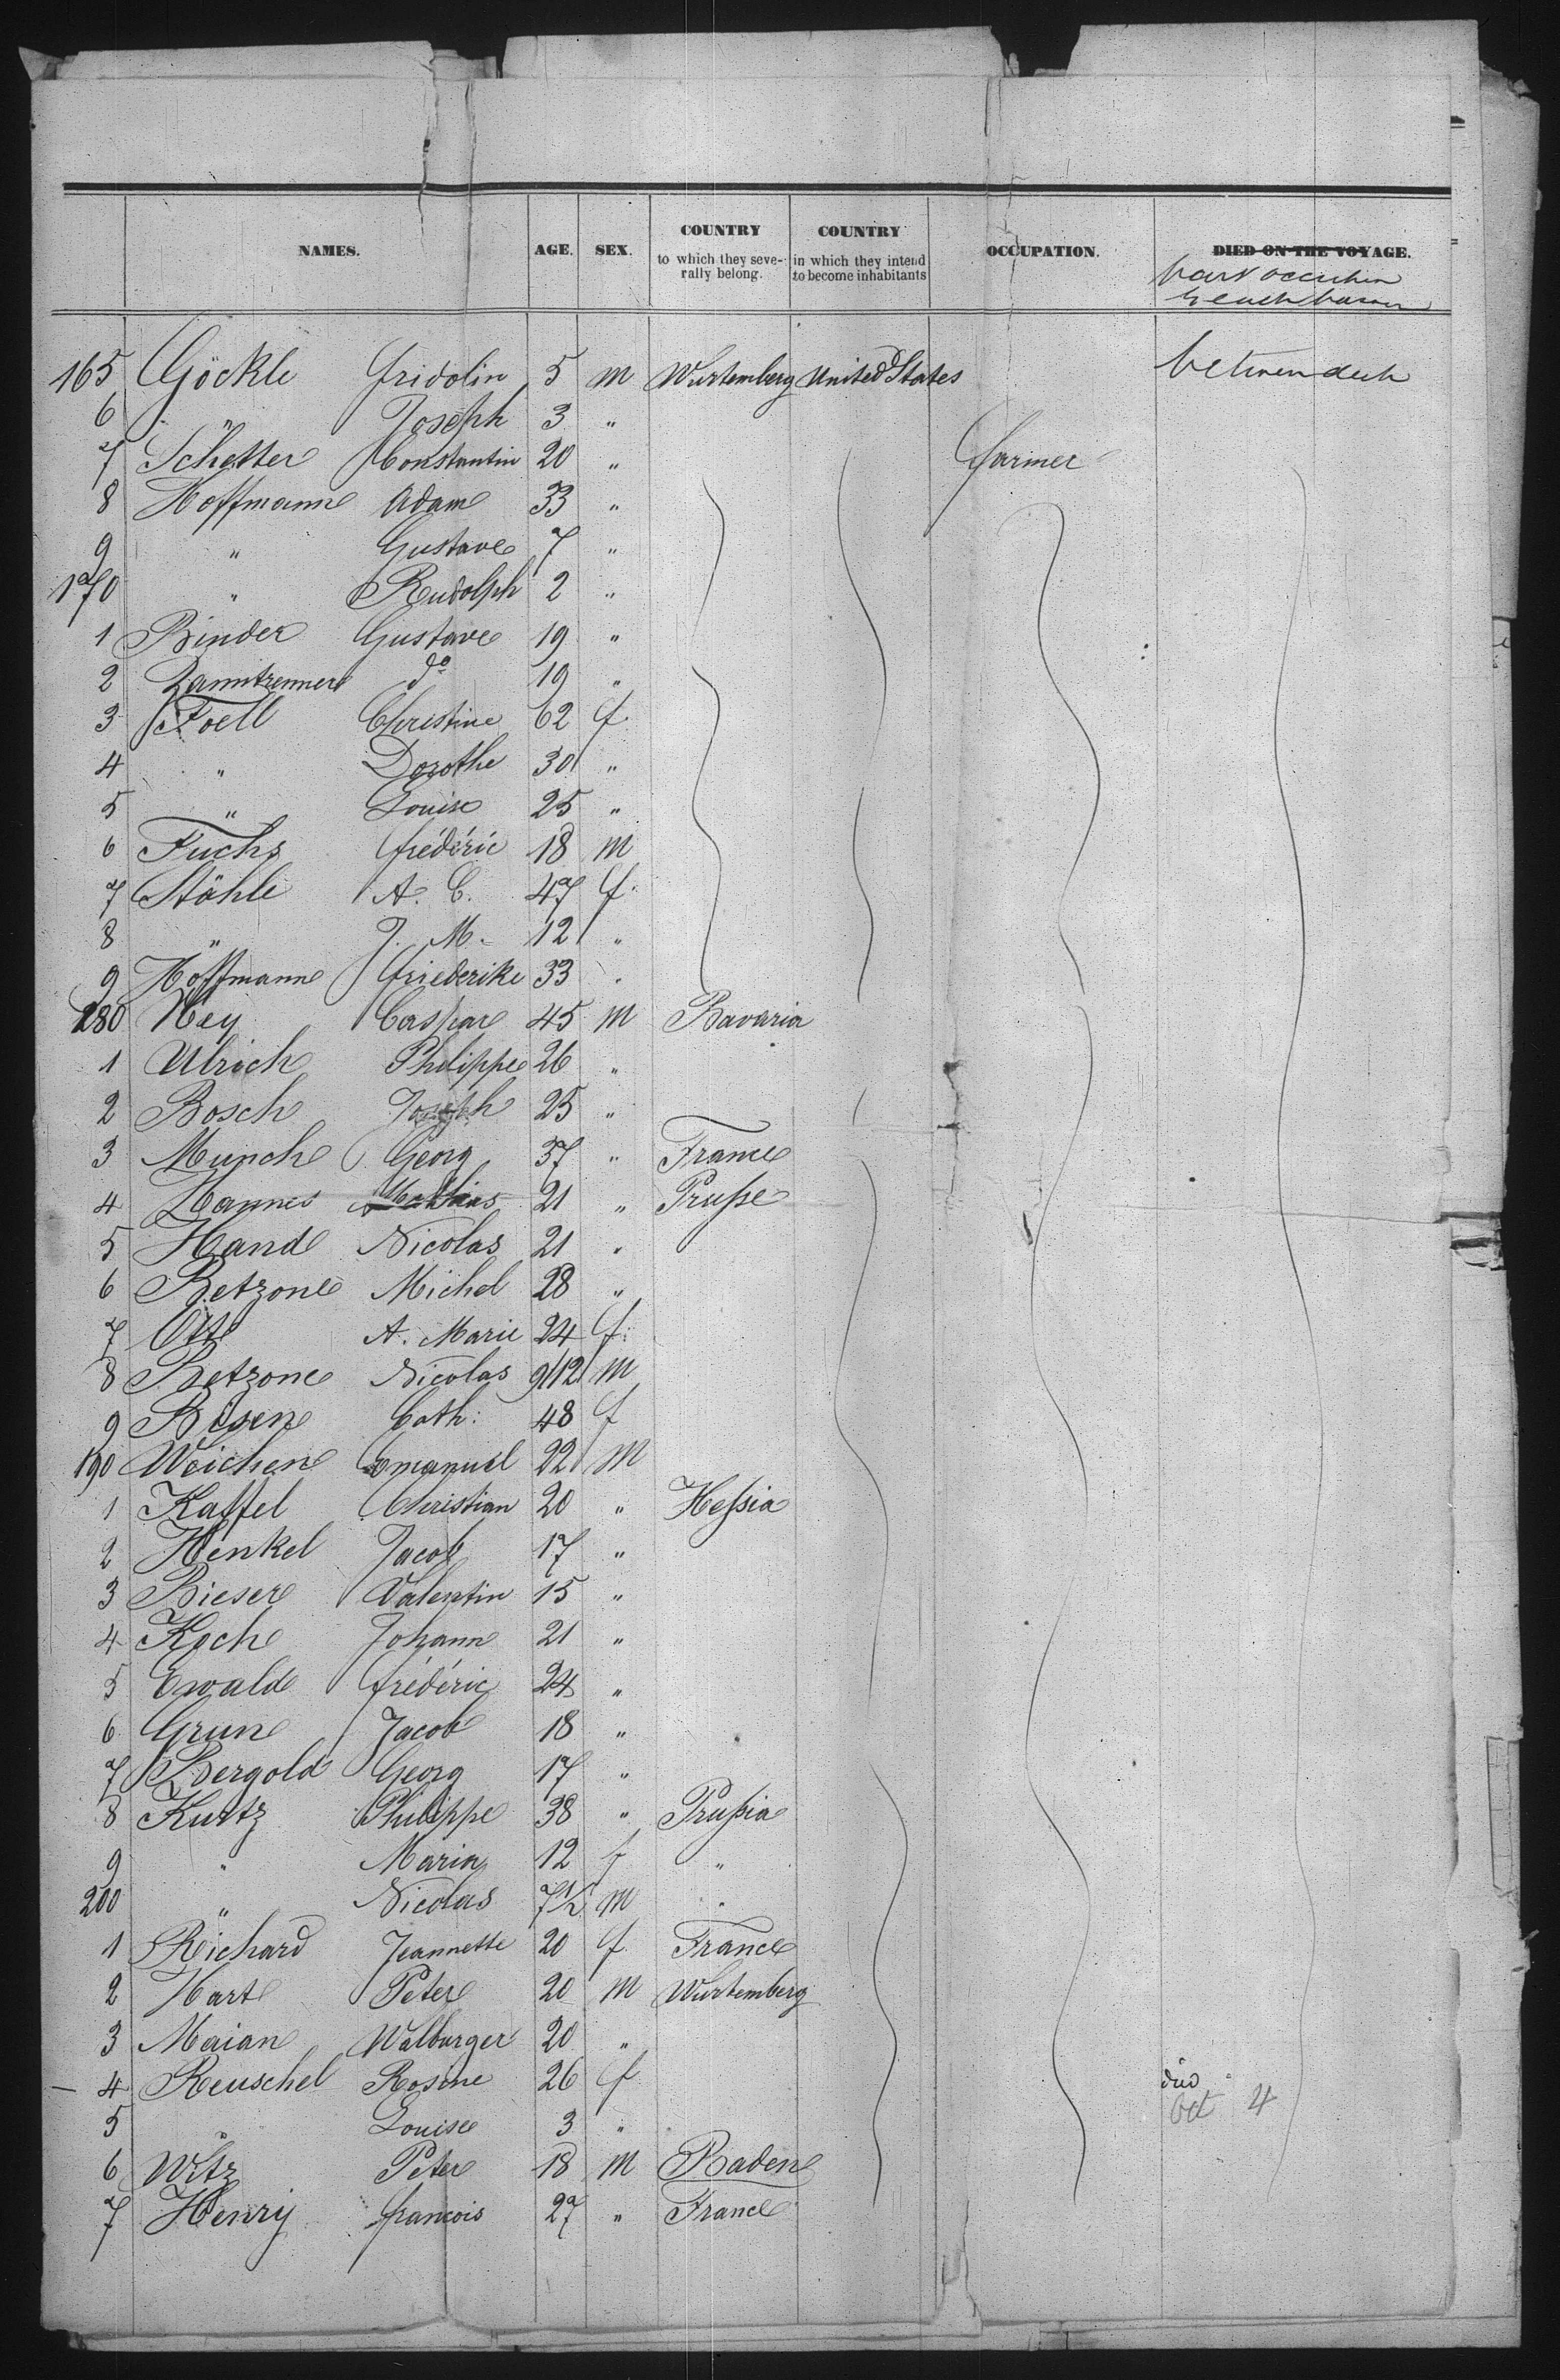 NAMES. AGE. SEX. COUNTRY to which they seve- rally belong. COUNTRY in which they intend to become inhabitants OCCUPATION. DIED ON THE VOYAGE.
165 Göckle Fridolin 5 m Wurtemberg United States between deck
6 " Joseph 3 "
7 Schetter Constantin 20 " farmer
8 Hoffmann Adam 33 "
9 " Gustave 7 "
170 " Rudolph 2 "
1 Binder Gustave 19 "
2 do 19 "
3 Foell Christine 62 f
4 " Dorothe 30 "
5 " Louise 25 "
6 Fuchs frédéric 18 m
7 Stähle A. C. 47 f.
8 " J. M. 12 "
9 Hoffmann friederike 33 "
180 Hey Caspar 45 m Bavaria
1 Ulrich Philippe 26 "
2 Bosch Joseph 25 "
3 Munch Georg 37 " France
4 Hannes Mathias 21 " Prusse
5 Hand Nicolas 21 "
6 Betzone Michel 28 "
7 Ott A. Marie 24 f.
8 Betzone Nicolas 9/12 m
9 Bisen Cath: 48 f
190 Weichen Emanuel 22 m
1 Kaffel Christian 20 " Hessia
2 Henkel Jacob 17 "
3 Bieser Valentin 15 "
4 Koch Johann 21 "
5 Ewald frédéric 24 "
6 Grun Jacob 18 "
7 Bergold Georg 17 "
8 Kurtz Philippe 38 " Prussia
9 " Maria 12 f "
200 " Nicolas 7½ m "
1 Richard Jeannette 20 f. France
2 Hart Peter 20 m Wurtemberg
3 Maian Walburger 20 "
4 Reuschel Rosine 26 f died
5 " Louise 3 " Oct 4
6 Witz Peter 18 m Baden
7 Henry francois 27 " France